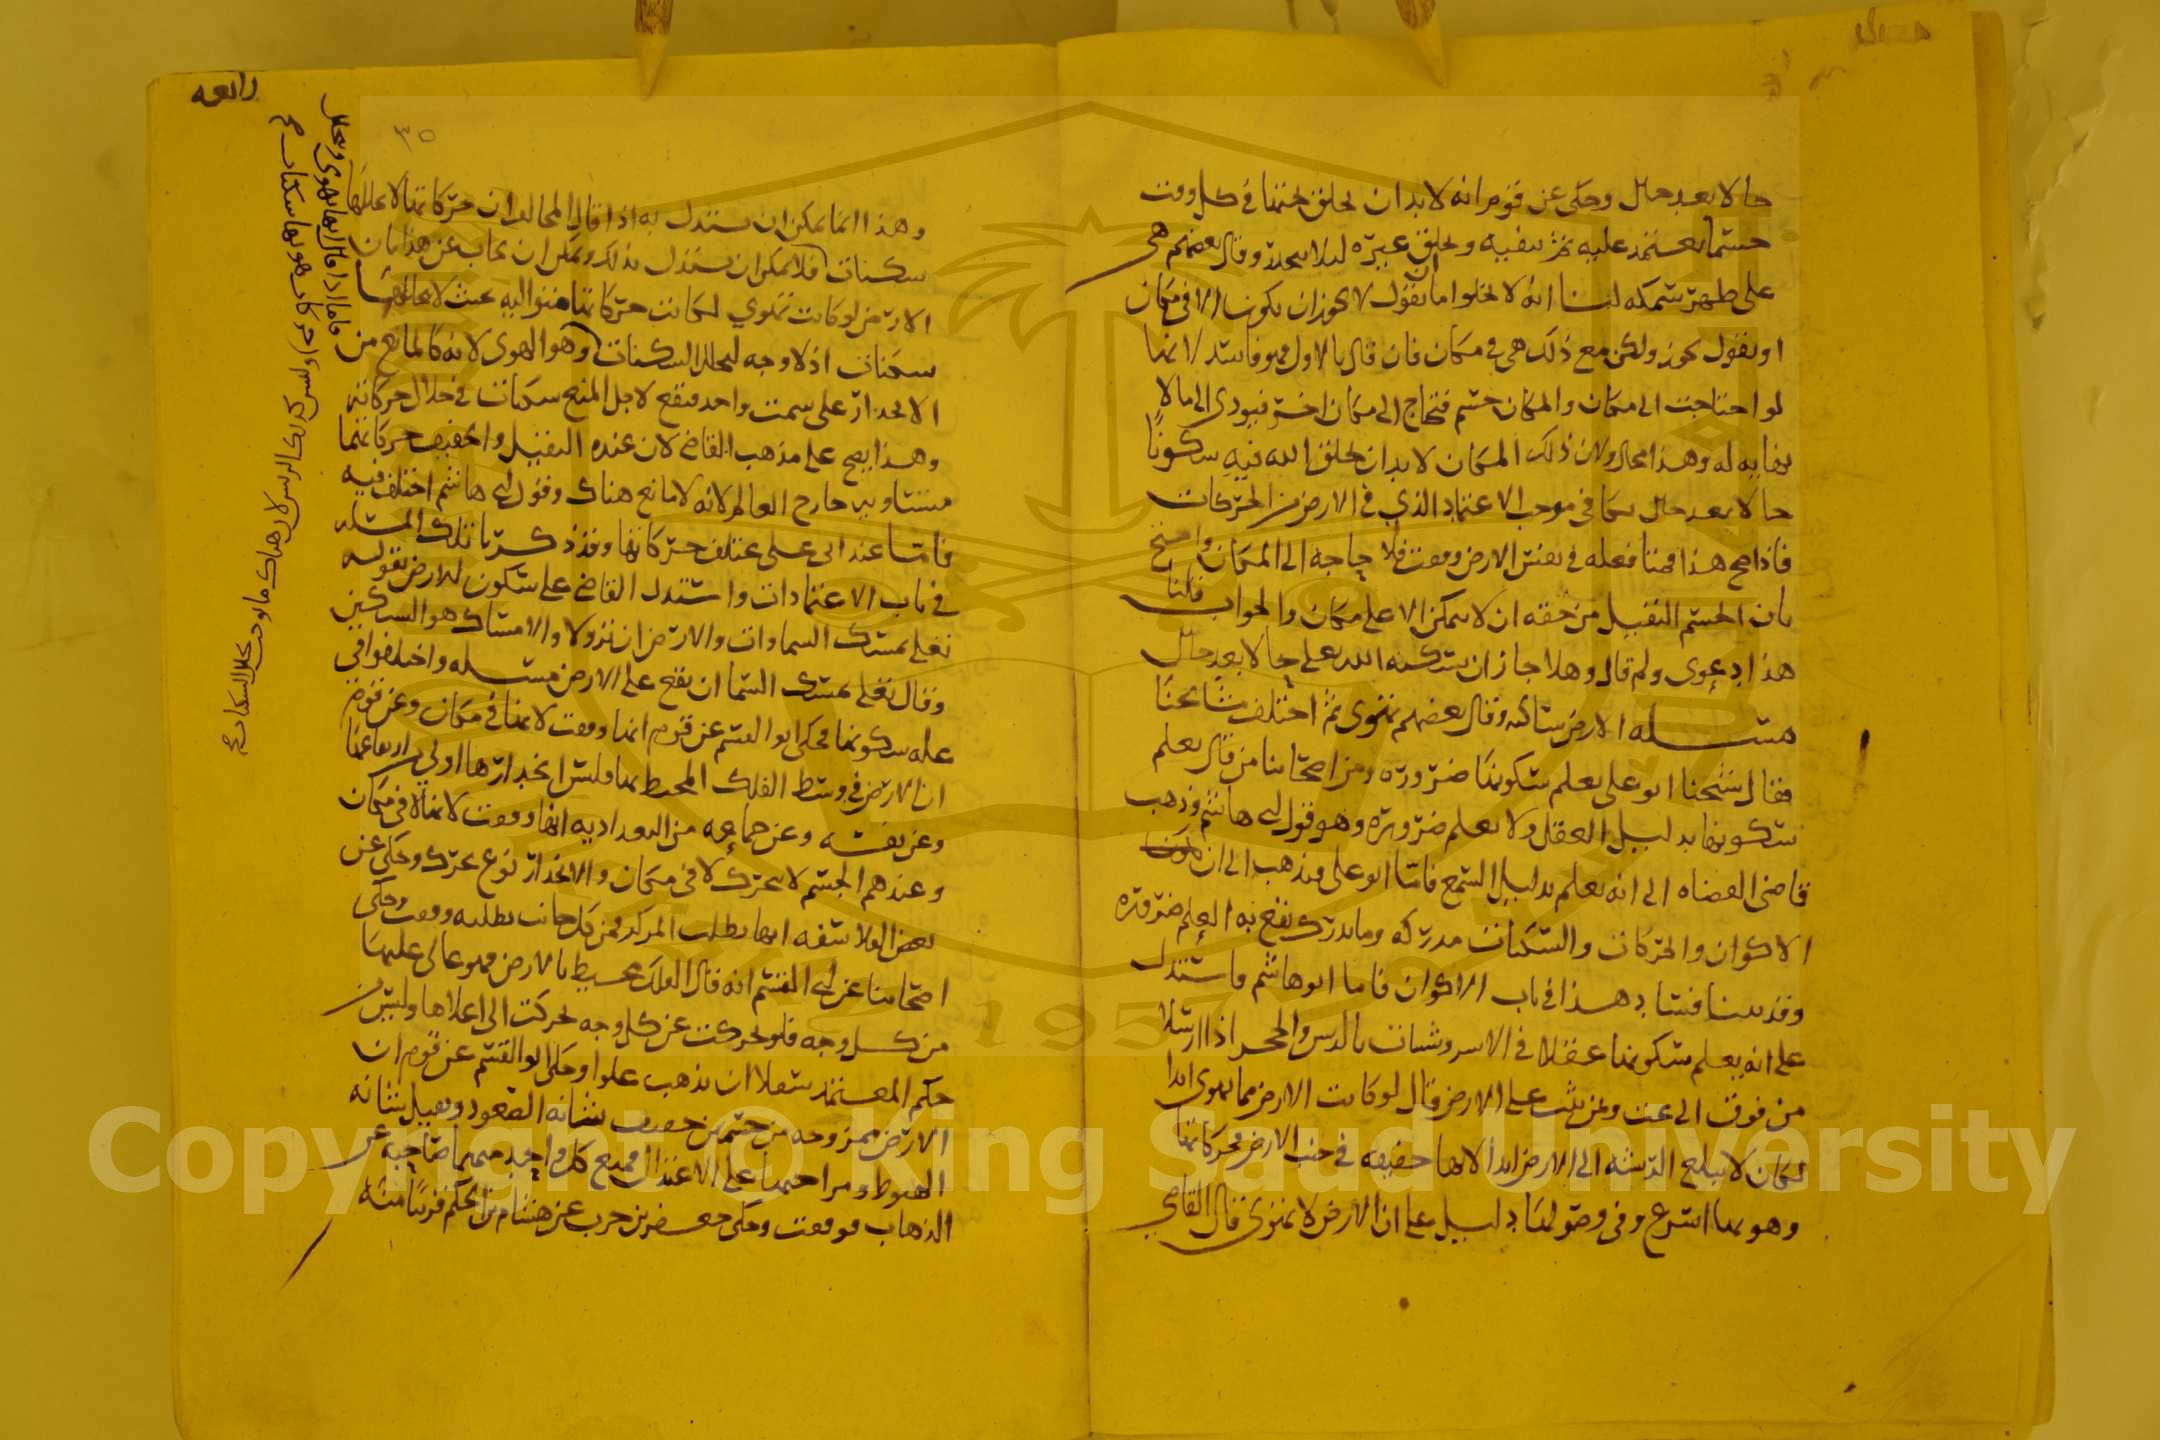 حالا بعد حال وحكى عن قوم انه لا بد ان يخلق تحتها في كل وقت
جسما تعتمد عليه ثم يفنيه ويخلق غيره لئلا ينحدر وقال بعضهم هي
على ظهر سمكه لنا انه لا يخلوا اما ان نقول لا يجوز ان يكون الا في مكان
او نقول يجوز ولكن مع ذلك هي في مكان فان قال بالاول فهو فاسد لانها
لو احتاجت الى مكان والمكان جسم فتحتاج الى مكان اخر فيودي الى ما لا
نهايه له وهذا محال ولان ذلك المكان لا بد ان يخلق الله فيه سكونا
حالا بعد حال يكافي موجب الاعتماد الذي في الارض من الحركات
فاذا صح هذا فمتى فعله في نفس الارض وقفت فلا حاجه الى المكان واحتج
بان الجسم الثقيل من حقه ان لا يمكن الا على مكان والجواب قلنا
هذا دعوى ولم قال وهلا جاز ان يسكنه الله تعالى حالا بعد حال
مسئله الارض ساكنه وقال بعضهم تهوى ثم اختلف مشائخنا
فقال شيخنا ابو على يعلم سكونها ضروره ومن اصحابنا من قال يعلم
سكونها بدليل العقل ولا يعلم ضروره وهو قول ابى هاشم وذهب
قاضى القضاه الى انه يعلم بدليل السمع فاما ابو على فذهب الى ان
الاكوان والحركات والسكنات مدركه وما يدرك يقع به العلم ضروره
وقد بينا فساد هذا في باب الاكوان فاما ابو هاشم فاستدل
على انه يعلم سكونها عقلا في بالريش والحجر اذا ارسلا
من فوق الى تحت على الارض قال لو كانت الارض مما يهوى ابدا
لكان لا يبلغ الريشه الى الارض ابدا لانها خفيفه في جنب الارض وحركاتها
وهو مما اسرع وفي وصولها دليل على ان الارض لا تهوى قال القاضي
رابعه
٣٥
وهذا انما يمكن ان يستدل به اذا قال المخالف ان حركاتها لا يتخللها
سكنات فلا يمكن ان يستدل بذلك ويمكن ان يجاب عن هذا بان
الارض لو كانت تهوي لكانت حركاتها متواليه بحيث لا يتخللها
سكنات اذ لا وجه لتخلل السكنات وهو الهوى لانه كالمانع من
الانحدار على سمت واحد فيقع لاجل المنع سكنات في خلال حركاته
وهذا يصح على مذهب القاضي لان عنده الثقيل والخفيف حركاتهما
متساويه خارج العالم لانه لا مانع هناك وقول ابى هاشم اختلف فيه
فاما عند ابى على تختلف حركاتها وقد ذكرنا تلك المسئله
في باب الاعتمادات واستدل القاضي على سكون الارض بقوله
تعلى يمسك السماوات والارض ان تزولا والامساك هو التسكين
وقال تعلى يمسك السما ان تقع على الارض مسئله واختلفوا في
عله سكونها فحكى ابو القسم عن قوم انها وقفت لانها في مكان وعن قوم
ان الارض في وسط الفلك المحيط بها وليس انحدارها اولى من ارتفاعها
وعن نفسه وعن جماعه من البغداديه انها وقفت لانها لا في مكان
وعندهم الجسم لا يتحرك لا في مكان والانحدار نوع تحرك وحكى عن
بعض الفلاسفه انها تطلب المركز فمن كل جانب تطلبه وقفت وحكى
اصحابنا عن ابى القسم انه قال الفلك محيط بالارض فهو عالى عليها
من كل وجه فلو تحركت عن كل وجه تحركت الى اعلاها وليس من
حكم المعتمد سفلا ان يذهب علوا وحكى ابو القسم عن قوم ان
الارض ممزوجه من جسمين خفيف شانه الصعود وثقيل شانه
الهبوط ومزاجهما على الاعتدال فمنع كل واحد منهما صاحبه عن
الذهاب فوقفت وحكى جعفر بن حرب عن هشام بن الحكم قريبا منه
Copyright © King Saud University